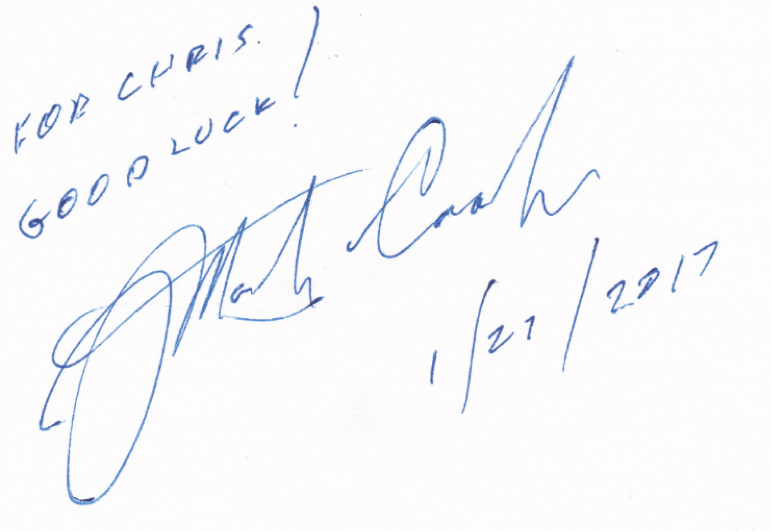 FOR CHRIS.
GOOD LUCK!
J Martin Cook
1/27/2017